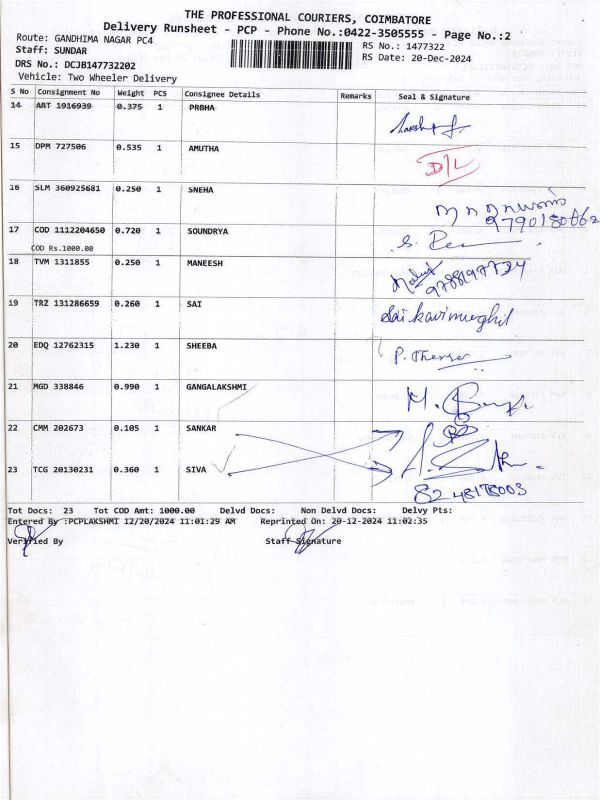 THE PROFESSIONAL COURIERS, COIMBATORE
Delivery Runsheet - PCP - Phone No.:0422-3505555 - Page No.:2
Route: GANDHIMA NAGAR PC4
RS No.: 1477322
Staff: SUNDAR
RS Date: 20-Dec-2024
DRS No.: DCJB147732202
Vehicle: Two Wheeler Delivery
S No Consignment No Weight PCS Consignee Details Remarks Seal & Signature
14 ART 1916939 0.375 1 PRBHA
15 DPM 727506 0.535 1 AMUTHA D/L
16 SLM 360925681 0.250 1 SNEHA
9790180062
17 COD 1112204650 0.720 1 SOUNDRYA
COD Rs.1000.00
18 TVM 1311855 0.250 1 MANEESH
19 TRZ 131286659 0.260 1 SAI Sai kavimughil
20 EDQ 12762315 1.230 1 SHEEBA
21 MGD 338846 0.990 1 GANGALAKSHMI
22 CMM 202673 0.105 1 SANKAR
23 TCG 20130231 0.360 1 SIVA
Tot Docs: 23 Tot COD Amt: 1000.00 Delvd Docs: Non Delvd Docs: Delvy Pts:
Entered By :PCPLAKSHMI 12/20/2024 11:01:29 AM Reprinted On: 20-12-2024 11:02:35
Verified By Staff Signature